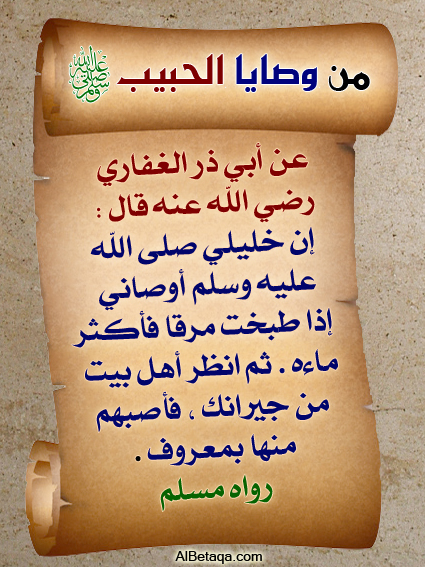 من وصايا الحبيب ﷺ
عن أبي ذر الغفاري
رضي الله عنه قال :
إن خليلي صلى الله
عليه وسلم أوصاني
إذا طبخت مرقا فأكثر
ماءه . ثم انظر أهل بيت
من جيرانك ، فأصبهم
منها بمعروف .
رواه مسلم
AlBetaqa.com